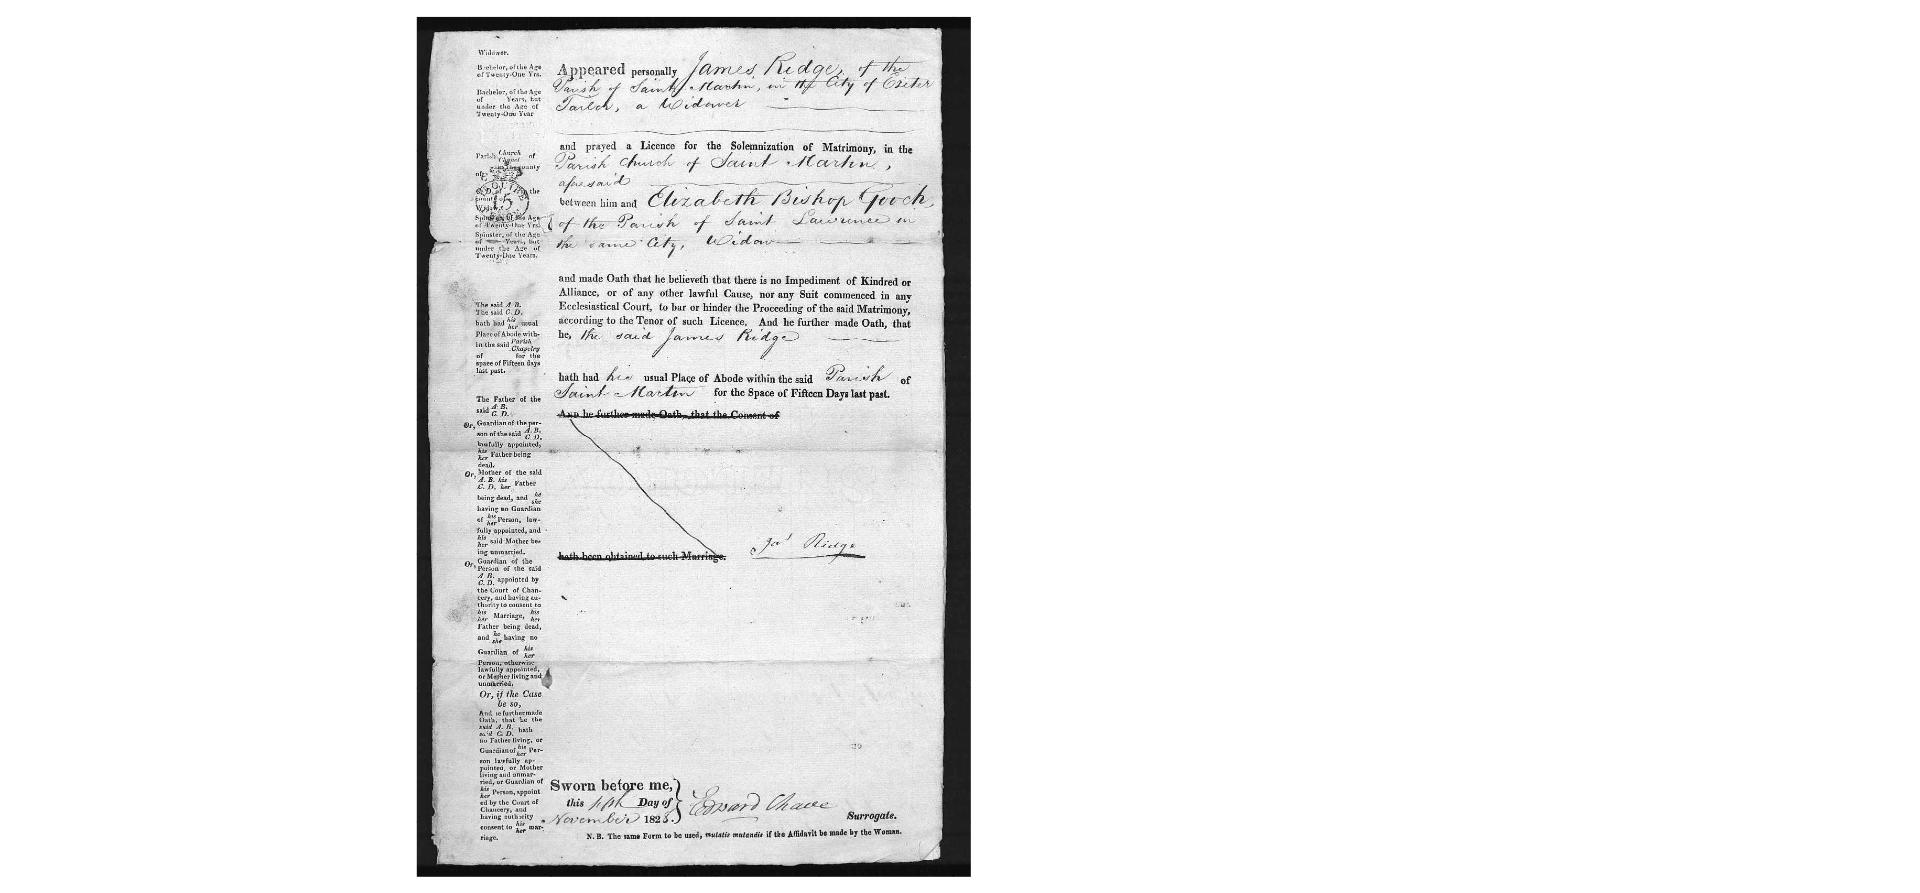 Widower.
Bachelor, of the Age
of Twenty-One Yrs.
Bachelor, of the Age
of Years, but
under the Age of
Twenty-One Year
Parish Church Chapel of
County
the
Spinster, of the Age
of Twenty-One Yrs.
Spinster, of the Age
of Years, but
under the Age of
Twenty-One Years.
The said A. B.
The said C. D.
hath had his her usual
Place of Abode with-
in the said Parish Chapelry
of for the
space of Fifteen days
last past.
The Father of the
said A. B. C. D.
Or, Guardian of the per-
son of the said A. B. C. D.
lawfully appointed,
his her Father being
dead.
Or, Mother of the said
A. B. his
C. D. her Father
being dead, and he she
having no Guardian
of his her Person, law-
fully appointed, and
his her said Mother be-
ing unmarried.
Or, Guardian of the
Person of the said
A. B. C. D. appointed by
the Court of Chan-
cery, and having au-
thority to consent to
his her Marriage, his her
Father being dead,
and he she having no
Guardian of his her
Person, otherwise
lawfully appointed,
or Mother living and
unmarried.
Or, if the Case
be so,
And he further made
Oath, that he the
said A. B.
said C. D. hath
no Father living, or
Guardian of his her Per-
son lawfully ap-
pointed, or Mother
living and unmar-
ried, or Guardian of
his her Person, appoint
ed by the Court of
Chancery, and
having authority
consent to his her mar-
riage.
Appeared personally James Ridge, of the
Parish of Saint Martin, in the City of Exeter
Tailor, a Widower
and prayed a Licence for the Solemnization of Matrimony, in the
Parish Church of Saint Martin,
aforesaid
between him and Elizabeth Bishop Gooch,
of the Parish of Saint Lawrence in
the same City, Widow
and made Oath that he believeth that there is no Impediment of Kindred or
Alliance, or of any other lawful Cause, nor any Suit commenced in any
Ecclesiastical Court, to bar or hinder the Proceeding of the said Matrimony,
according to the Tenor of such Licence. And he further made Oath, that
he, the said James Ridge
hath had his usual Place of Abode within the said Parish of
Saint Martin for the Space of Fifteen Days last past.
AND he further made Oath, that the Consent of
hath been obtained to such Marriage.
Jas Ridge
Sworn before me,
this Day of
November 1828.
Edward Chave
Surrogate.
N. B. The same Form to be used, mutatis mutandis if the Affidavit be made by the Woman.